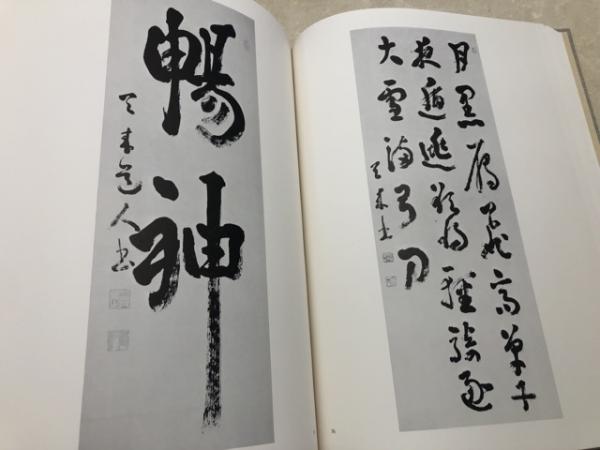 月黒雁飛高單于
夜遁逃欲將輕騎逐
大雪滿弓刀
天来書
暢神
天来道人書